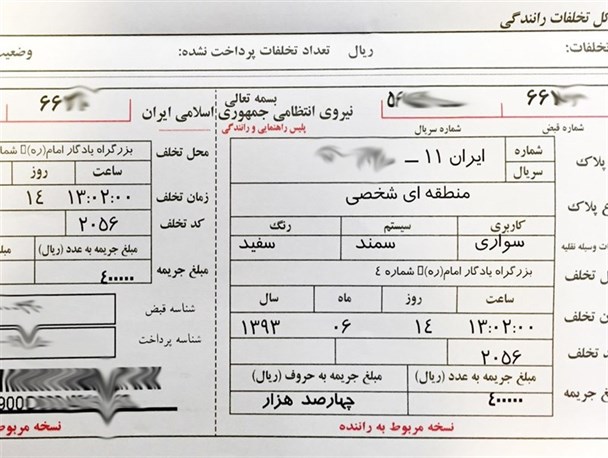 کل تخلفات رانندگی
تخلفات: ریال تعداد تخلفات پرداخت نشده: وضعیت
بسمه تعالی
نیروی انتظامی جمهوری اسلامی ایران
پلیس راهنمایی و رانندگی
۶۶۱
شماره قبض
۵۶
شماره سریال
پلاک شماره سریال ایران ۱۱ ــ
ع پلاک منطقه ای شخصی
ات وسیله نقلیه کاربری سیستم رنگ
سواری سمند سفید
ل تخلف بزرگراه یادگار امام(ره)▯ شماره ٤
ان تخلف ساعت روز ماه سال
۱۳:۰۲:۰۰ ۱٤ ۰۶ ۱۳۹۳
د تخلف ۲۰۵۶
جریمه مبلغ جریمه به عدد (ریال) مبلغ جریمه به حروف (ریال)
٤۰۰۰۰۰ چهارصد هزار
نسخه مربوط به راننده
۶۶
محل تخلف بزرگراه یادگار امام(ره)▯ شما
زمان تخلف ساعت روز
۱۳:۰۲:۰۰ ۱٤
کد تخلف ۲۰۵۶
مبلغ جریمه مبلغ جریمه به عدد (ریال) مبل
٤۰۰۰۰۰
شناسه قبض
شناسه پرداخت
900
نسخه مربوط